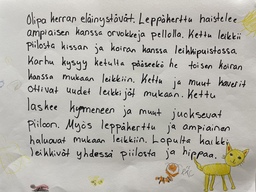 Olipa kerran eläinystävät. Leppäkerttu haistelee
ampiaisen kanssa orvokkeja pellolla. Kettu leikkii
piilosta kissan ja koiran kanssa leikkipuistossa
Karhu kysyy ketulta pääseekö he toisen koiran
kanssa mukaan leikkiin. Kettu ja muut kaverit
ottivat uudet leikkijät mukaan. Kettu
laskee kymmeneen ja muut juoksevat
piiloon. Myös leppäkerttu ja ampiainen
haluavat mukaan leikkiin. Lopulta kaikki
leikkivät yhdessä piilosta ja hippaa.